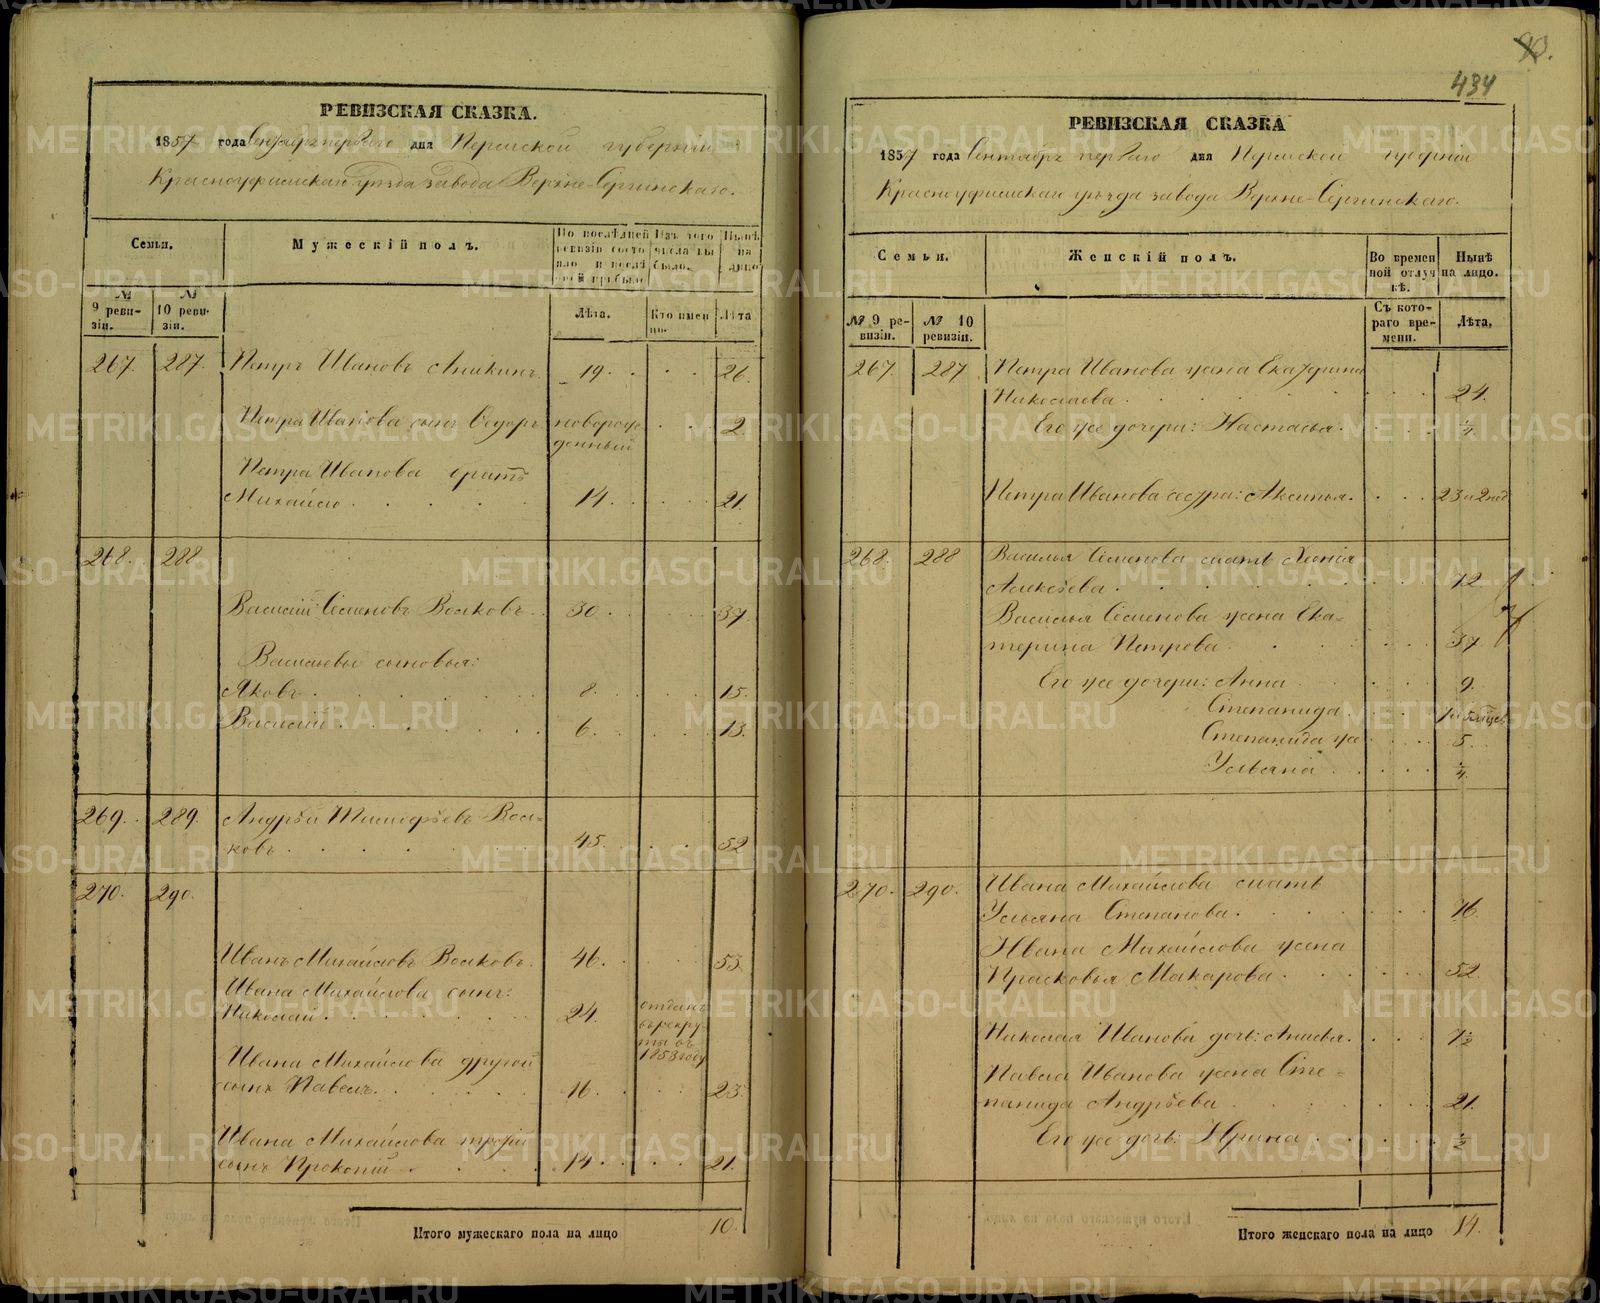 РЕВИЗСКАЯ СКАЗКА.
1857 года Сентября первого дня Пермской губернии
Красноуфимскаго уѣзда завода Верхне-Сергинскаго.
Семьи.
Мужескій полъ.
По послѣдней ревизіи состояло и послѣ той прибыло
Изъ того числа выбыло.
Нынѣ на лицо
№ 9 ревизіи.
№ 10 ревизіи.
Лѣта.
Кто именно.
Лѣта
267. 287. Петръ Ивановъ Аникинъ 19 26.
Петра Иванова сынъ Ѳедоръ новорожденный 2
Петра Иванова братъ
Михайло 14 21.
268. 288
Василій Семеновъ Волковъ 30 37.
Васильевы сыновья:
Яковъ 8. 15.
Василій 6. 13.
269. 289. Андрѣй Тимофѣевъ Вол-
ковъ 45. 52
270. 290.
Иванъ Михайловъ Волковъ. 46. 53.
Ивана Михайлова сынъ:
Николай 24. отданъ въ рекруты въ 1853 году
Ивана Михайлова другой
сынъ Павелъ 16. 23.
Ивана Михайлова третій
сынъ Прокопій 14. 21.
Итого мужескаго пола на лицо 10.
434
РЕВИЗСКАЯ СКАЗКА
1857 года Сентября первого дня Пермской губерніи
Красноуфимскаго уѣзда завода Верхне-Сергинскаго.
Семьи.
Женскій полъ.
Во временной отлучкѣ.
Нынѣ на лицо.
№ 9 ревизіи.
№ 10 ревизіи.
Съ котораго времени.
Лѣта.
267. 287 Петра Иванова жена Екатерина
Николаева 24.
Его же дочери: Настасья
Петра Иванова сестра: Аксинья. 23
268. 288 Василья Семенова мать
Алексѣева 72.
Василья Семенова жена Ека-
терина Петрова 37
Его же дочери: Анна 9.
Степанида
Степанида же 5.
Ульяна
270. 290. Ивана Михайлова мать
Ульяна Степанова. 76
Ивана Михайлова жена
Прасковья Макарова 52.
Николая Иванова дочь:
Павла Иванова жена Сте-
панида Андрѣева 21.
Его же дочь: Ирина ½
Итого женскаго пола на лицо 14.
METRIKI.GASO-URAL.RU